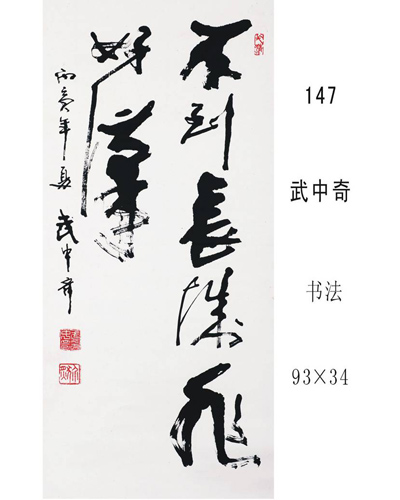 不到長城非
好漢
丙寅年夏 武中奇
147
武中奇
书法
93×34